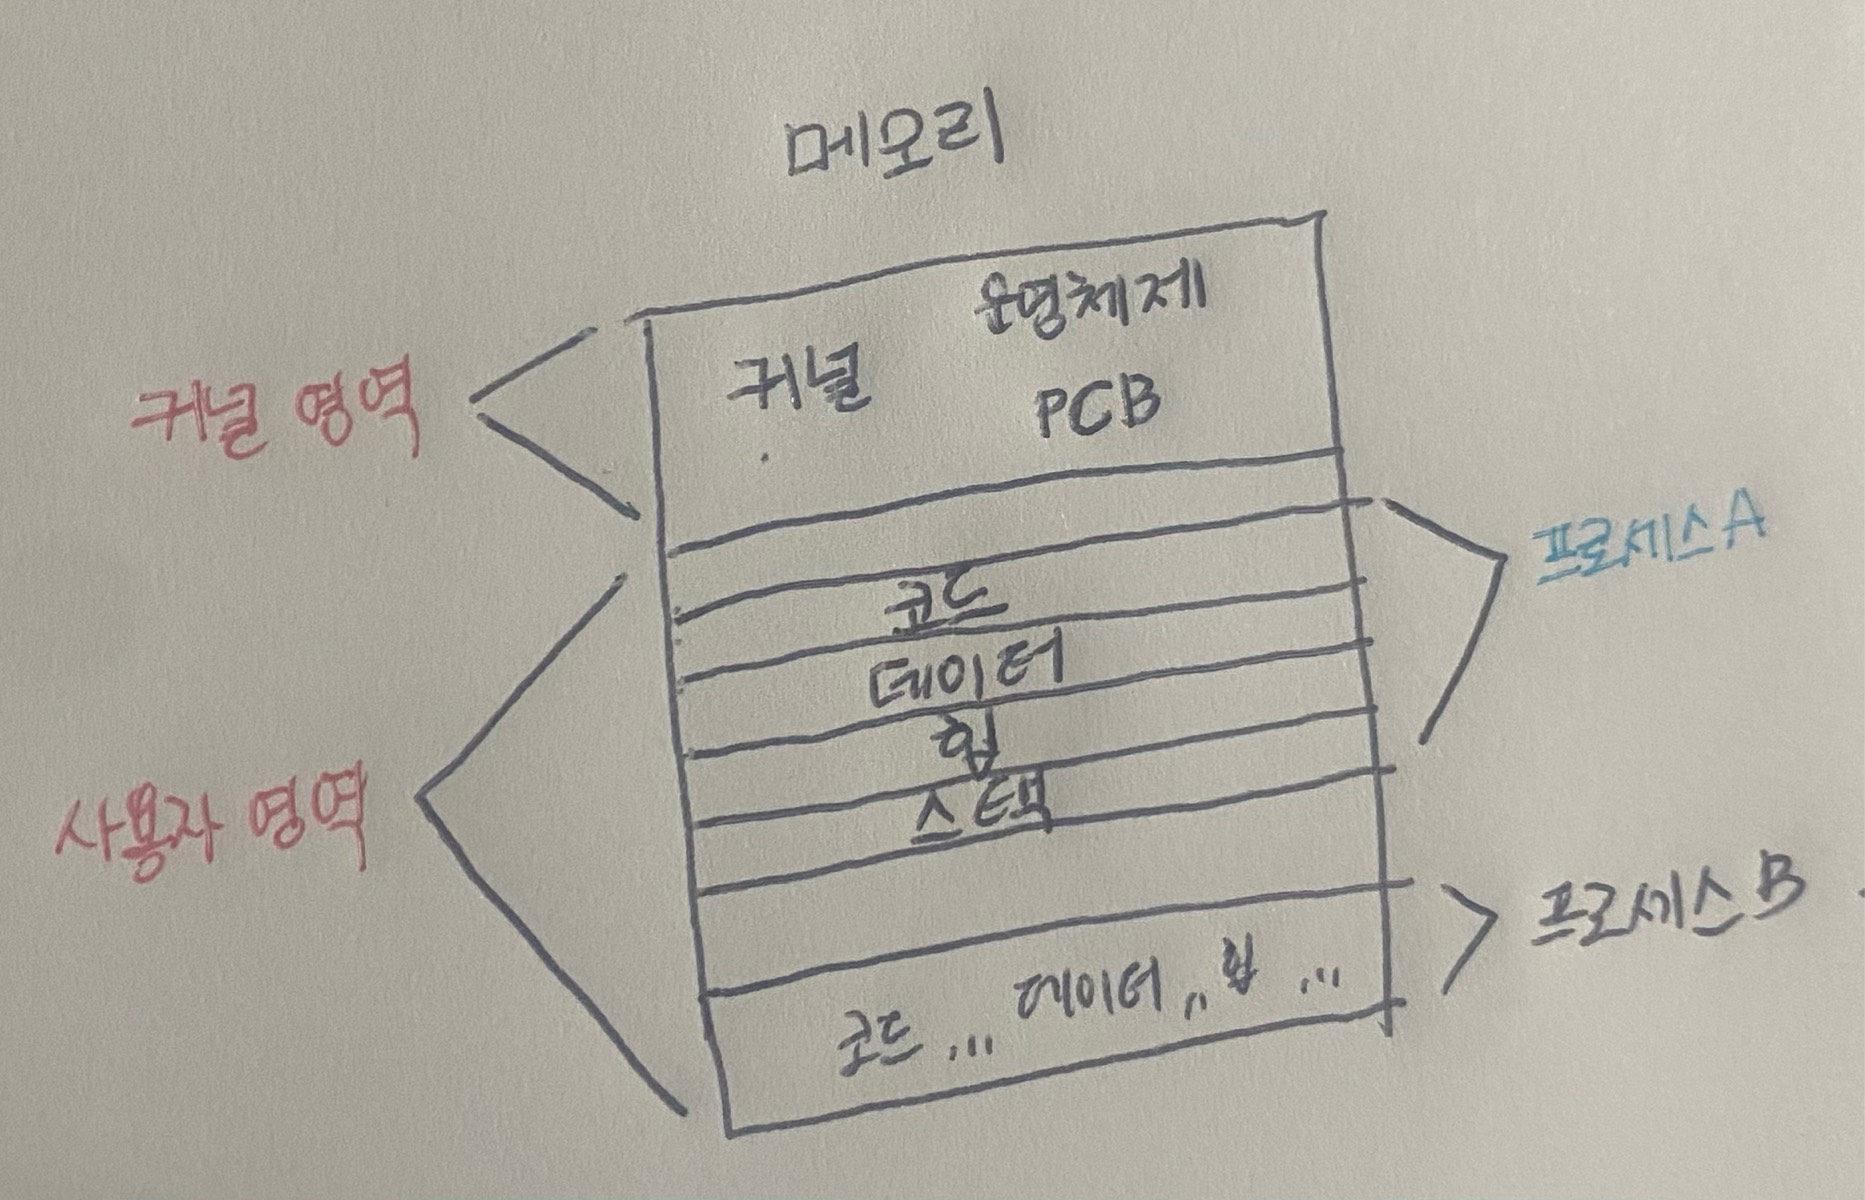 메모리
운영체제
커널
PCB
커널 영역
프로세스A
코드
데이터
힙
스택
사용자 영역
프로세스B
코드 ... 데이터 ,, 힙 ...